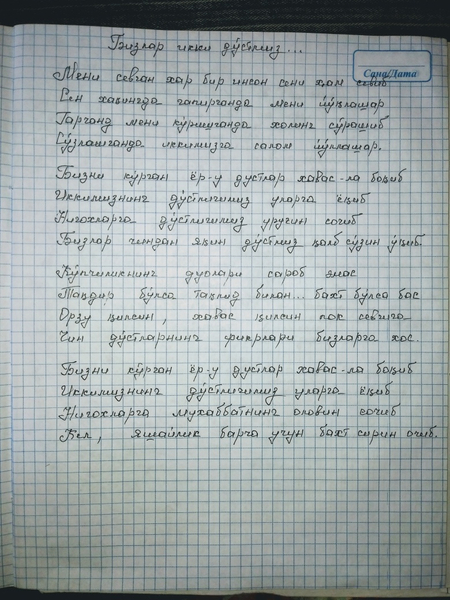 Бизлар икки дўстмиз...
Сана/Дата
Мени севган хар бир инсон сени хам севиб
Сен хакингда гапирганда мени йўклашар
Гарчанд мени кўришганда холинг сўрашиб
Сўзлашганда иккимизга салом йўллашар.
Бизни кўрган ёр-у дустлар хавас-ла бокиб
Иккимизнинг дўстлигимиз уларга ёкиб
Нигохларга дўстлигимиз уругин сочиб
Бизлар чиндан якин дўстмиз калб сўзин укиб.
Кўпчиликнинг дуолари сароб эмас
Такдир бўлса таклид билан... бахт бўлса бас
Орзу килсин, хавас килсин пок севгига
Чин дўстларнинг фикрлари бизларга хос.
Бизни кўрган ёр-у дустлар хавас-ла бокиб
Иккимизнинг дўстлигимиз уларга ёкиб
Нигохларга мухаббатнинг оловин сочиб
Кел, яшайлик барча учун бахт сирин очиб.